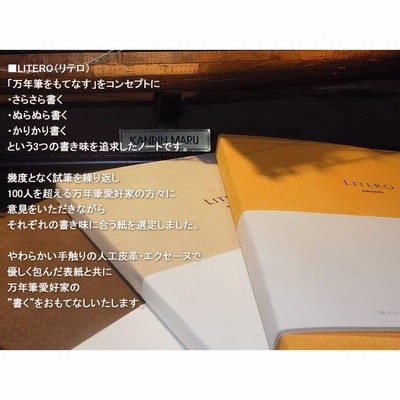 ■LITERO(リテロ)
「万年筆をもてなす」をコンセプトに
・さらさら書く
・ぬらぬら書く
・かりかり書く
という3つの書き味を追求したノートです。
幾度となく試筆を繰り返し
100人を超える万年筆愛好家の方々に
意見をいただきながら
それぞれの書き味に合う紙を選定しました。
やわらかい手触りの人工皮革・エクセーヌで
優しく包んだ表紙と共に
万年筆愛好家の
"書く"をおもてなしいたします。
KANRIN MARU
LITERO